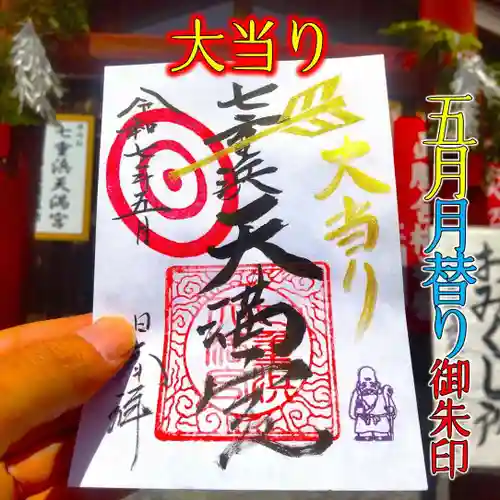 大当り
五月月替り御朱印
七重浜天満宮
大当り
令和七年五月
七重浜天満宮
おみくじ所